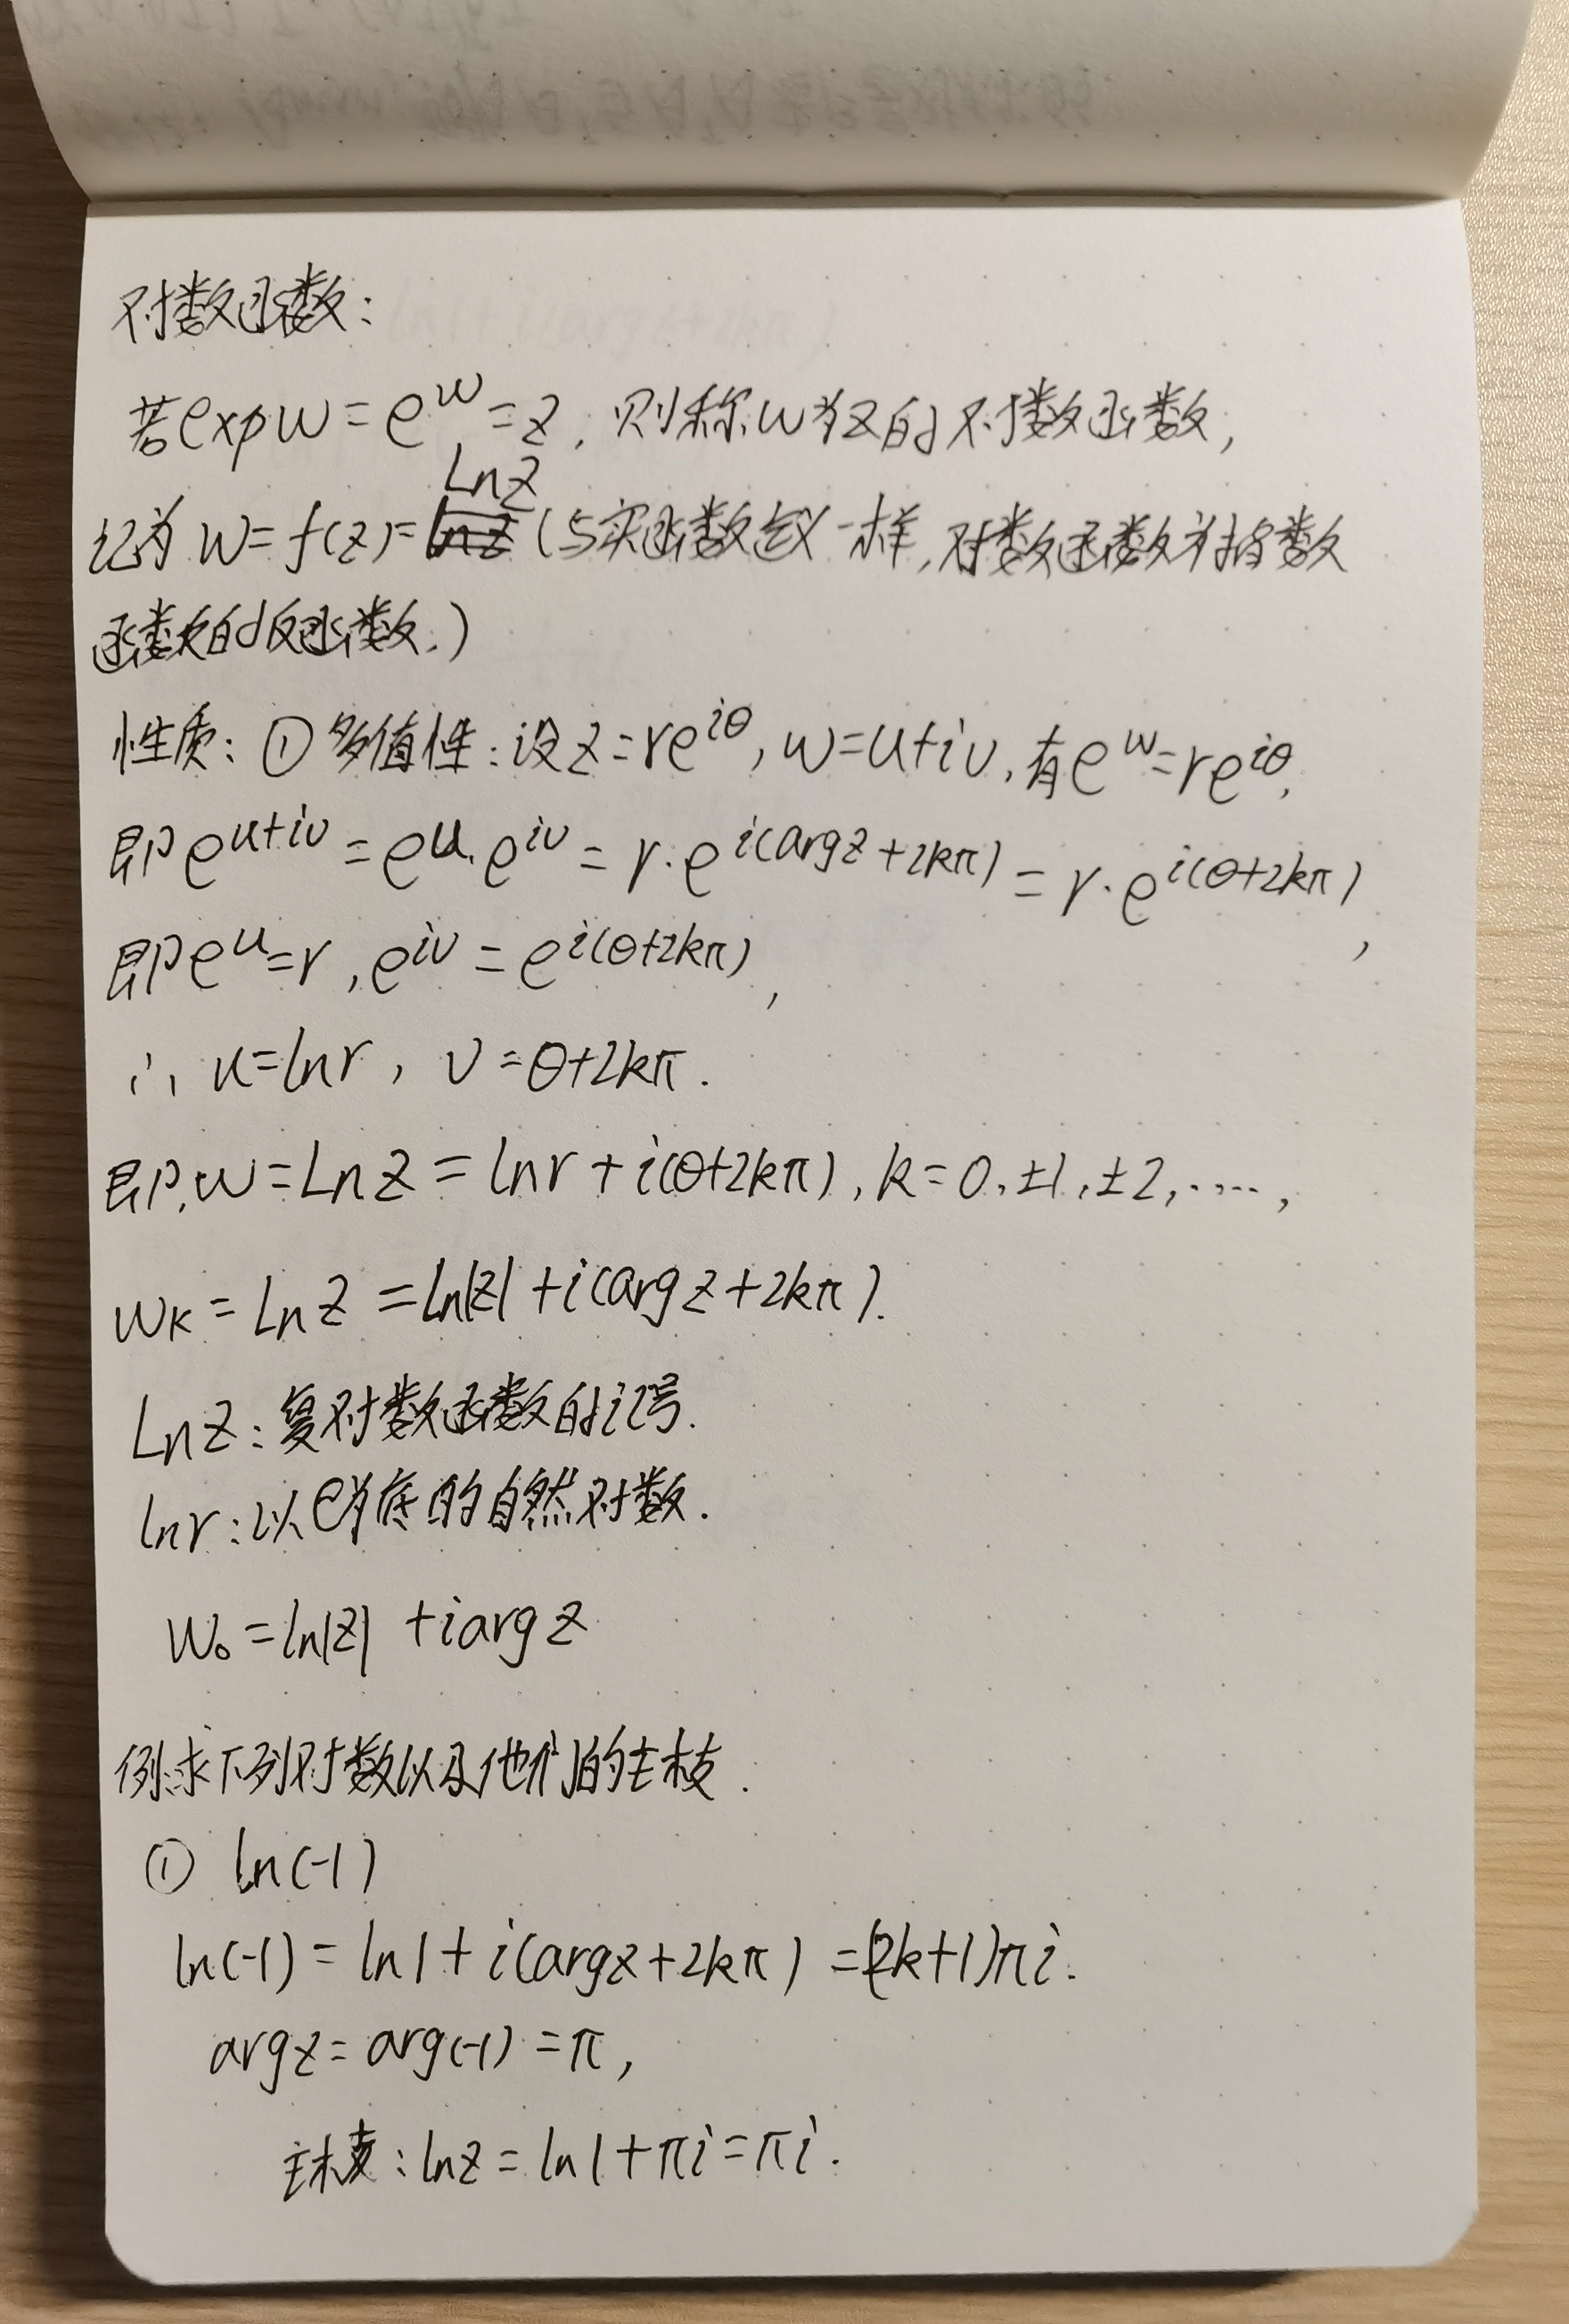 对数函数:
若 exp w = e^w = z, 则称w为z的对数函数,
Ln z
记为 w = f(z) = (与实函数定义一样,对数函数为指数
函数的反函数.)
性质: ① 多值性: 设 z = re^{iθ}, w = u+iv, 有 e^w = re^{iθ},
即 e^{u+iv} = e^u·e^{iv} = r·e^{i(arg z + 2kπ)} = r·e^{i(θ+2kπ)},
即 e^u = r, e^{iv} = e^{i(θ+2kπ)},
∴ u = ln r, v = θ+2kπ.
即, w = Ln z = ln r + i(θ+2kπ), k = 0, ±1, ±2, ·····,
w_k = Ln z = ln|z| + i(arg z + 2kπ).
Ln z: 复对数函数的记号.
ln r: 以e为底的自然对数.
w_0 = ln|z| + i arg z
例:求下列对数以及他们的主枝.
① ln(-1)
ln(-1) = ln 1 + i(arg z + 2kπ) = (2k+1)πi.
arg z = arg(-1) = π,
主枝: ln z = ln 1 + πi = πi.